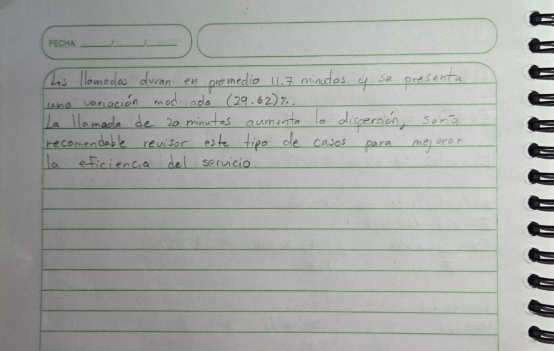 FECHA / /
Las llamadas duran en promedio 11.7 minutos y se presenta
una variación moderada (29.62)%.
La llamada de 20 minutos aumenta la dispersión, sería
recomendable revisar este tipo de casos para mejorar
la eficiencia del servicio.